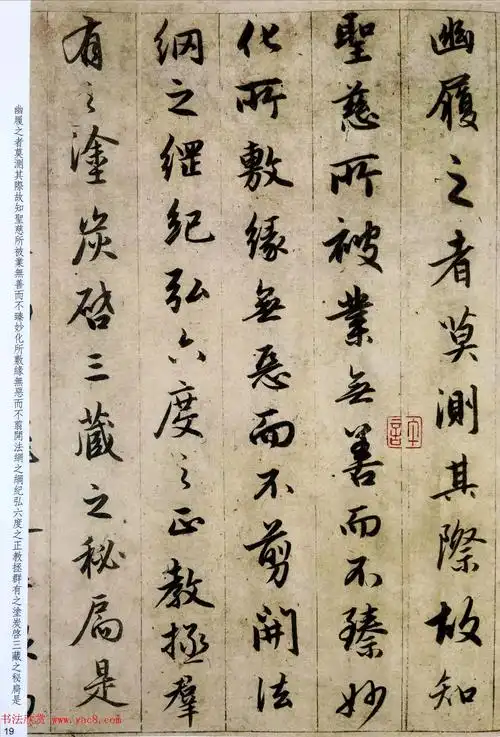 幽履之者莫測其際故知
聖慈所被業無善而不臻妙
化所敷緣無惡而不剪開法
網之綱紀弘六度之正教拯群
有之塗炭啓三藏之秘扃是
幽履之者莫測其際故知聖慈所被業無善而不臻妙化所敷緣無惡而不翦開法網之綱紀弘六度之正教拯群有之塗炭啓三藏之秘扃是
书法欣赏 www.yac8.com
19